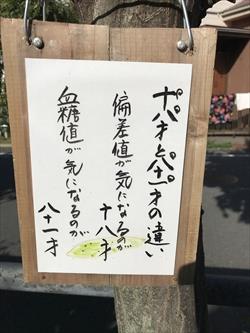 十八才と八十一才の違い
偏差値が気になるのが
十八才
血糖値が気になるのが
八十一才